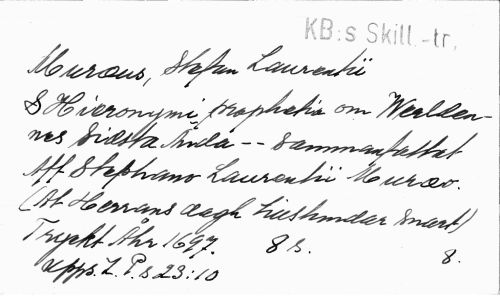 KB:s Skill.-tr.
Muræus, Stefan Laurentii
S Hieronymi prophetia om Werlden-
nes Sidsta Ända -- Sammanfattat
Aff Stephano Laurentii Muræo.
(At Herrans dagh tilstundar snart)
Tryckt Åhr 1697. 8 s. 8.
Upps. L. P. s 23:10